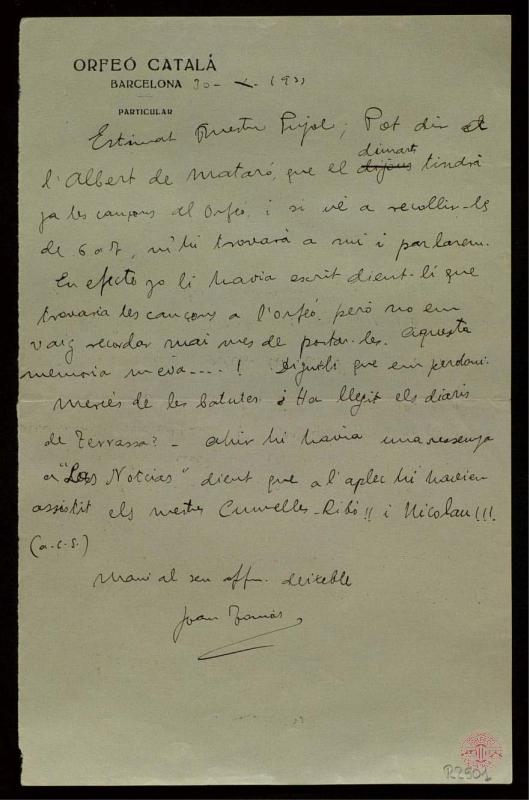 ORFEÓ CATALÁ
BARCELONA 30- X- 1931
PARTICULAR
Estimat Mestre Pujol; Pot dir al
dimarts
l'Albert de Mataró, que el dijous tindrà
ja les cançons al Orfeó, i si vé a recollir-les
de 6 a 7, m'hi trovarà a mi i parlarem.
En efecte jo li havia escrit dient-li que
trovaria les cançons a l'orfeó però no em
vaig recordar mai mes de portar-les. Aquesta
memoria meva....! Digui-li que em perdoni.
Mercés de les batutes ¿Ha llegit els diaris
de Terrassa? - Ahir hi havia una ressenya
a "Las Noticias" dient que a l'aplec hi havien
assistit els mestres Cumellas-Ribó!! i Nicolau!!!
(a.c.s.)
Mani al seu affm. deixeble
Joan Tomàs
R2901